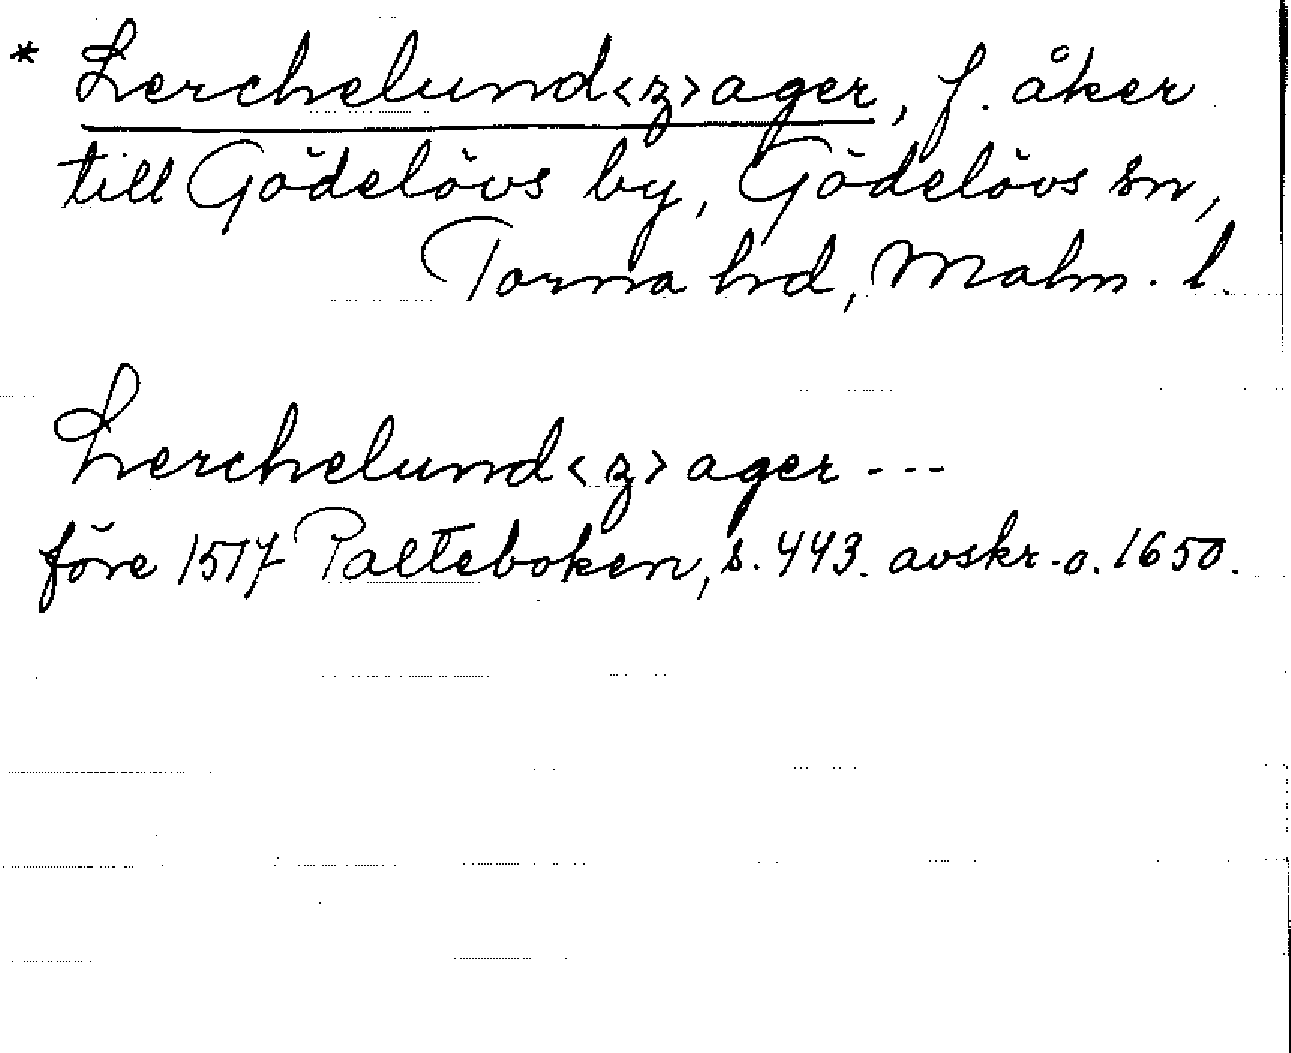 * Lerchelund<z>ager, f. åker
till Gödelövs by, Gödelövs sn,
Torna hd, Malm. l.
Lerchelund<z>ager ---
före 1517 Palteboken, s. 443. avskr. o. 1650.